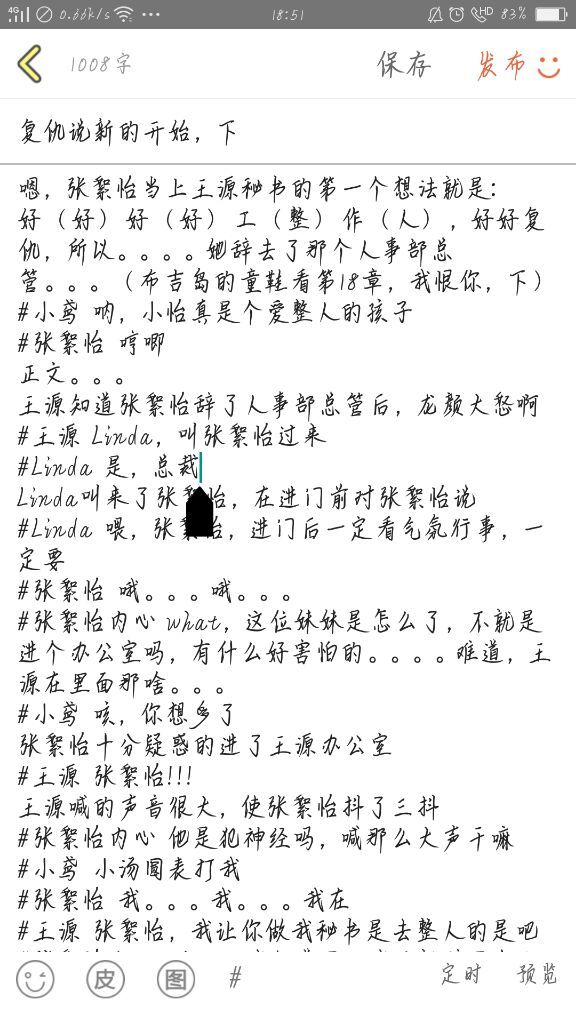 4G 0.66k/s ... 18:51 HD 83%
1008字 保存 发布
复仇说新的开始，下
嗯，张絮怡当上王源秘书的第一个想法就是：
好（好）好（好）工（整）作（人），好好复
仇，所以。。。。她辞去了那个人事部总
管。。。（布吉岛的童鞋看第18章，我恨你，下）
#小鸢 呐，小怡真是个爱整人的孩子
#张絮怡 哼唧
正文。。。
王源知道张絮怡辞了人事部总管后，龙颜大愁啊
#王源 Linda，叫张絮怡过来
#Linda 是，总裁
Linda叫来了张絮怡，在进门前对张絮怡说
#Linda 喂，张絮怡，进门后一定看气氛行事，一
定要
#张絮怡 哦。。。哦。。。
#张絮怡内心 what，这位妹妹是怎么了，不就是
进个办公室吗，有什么好害怕的。。。。难道，王
源在里面那啥。。。
#小鸢 咳，你想多了
张絮怡十分疑惑的进了王源办公室
#王源 张絮怡!!!
王源喊的声音很大，使张絮怡抖了三抖
#张絮怡内心 他是犯神经吗，喊那么大声干嘛
#小鸢 小汤圆表打我
#张絮怡 我。。。我。。。我在
#王源 张絮怡，我让你做我秘书是去整人的是吧
皮 图 # 定时 预览